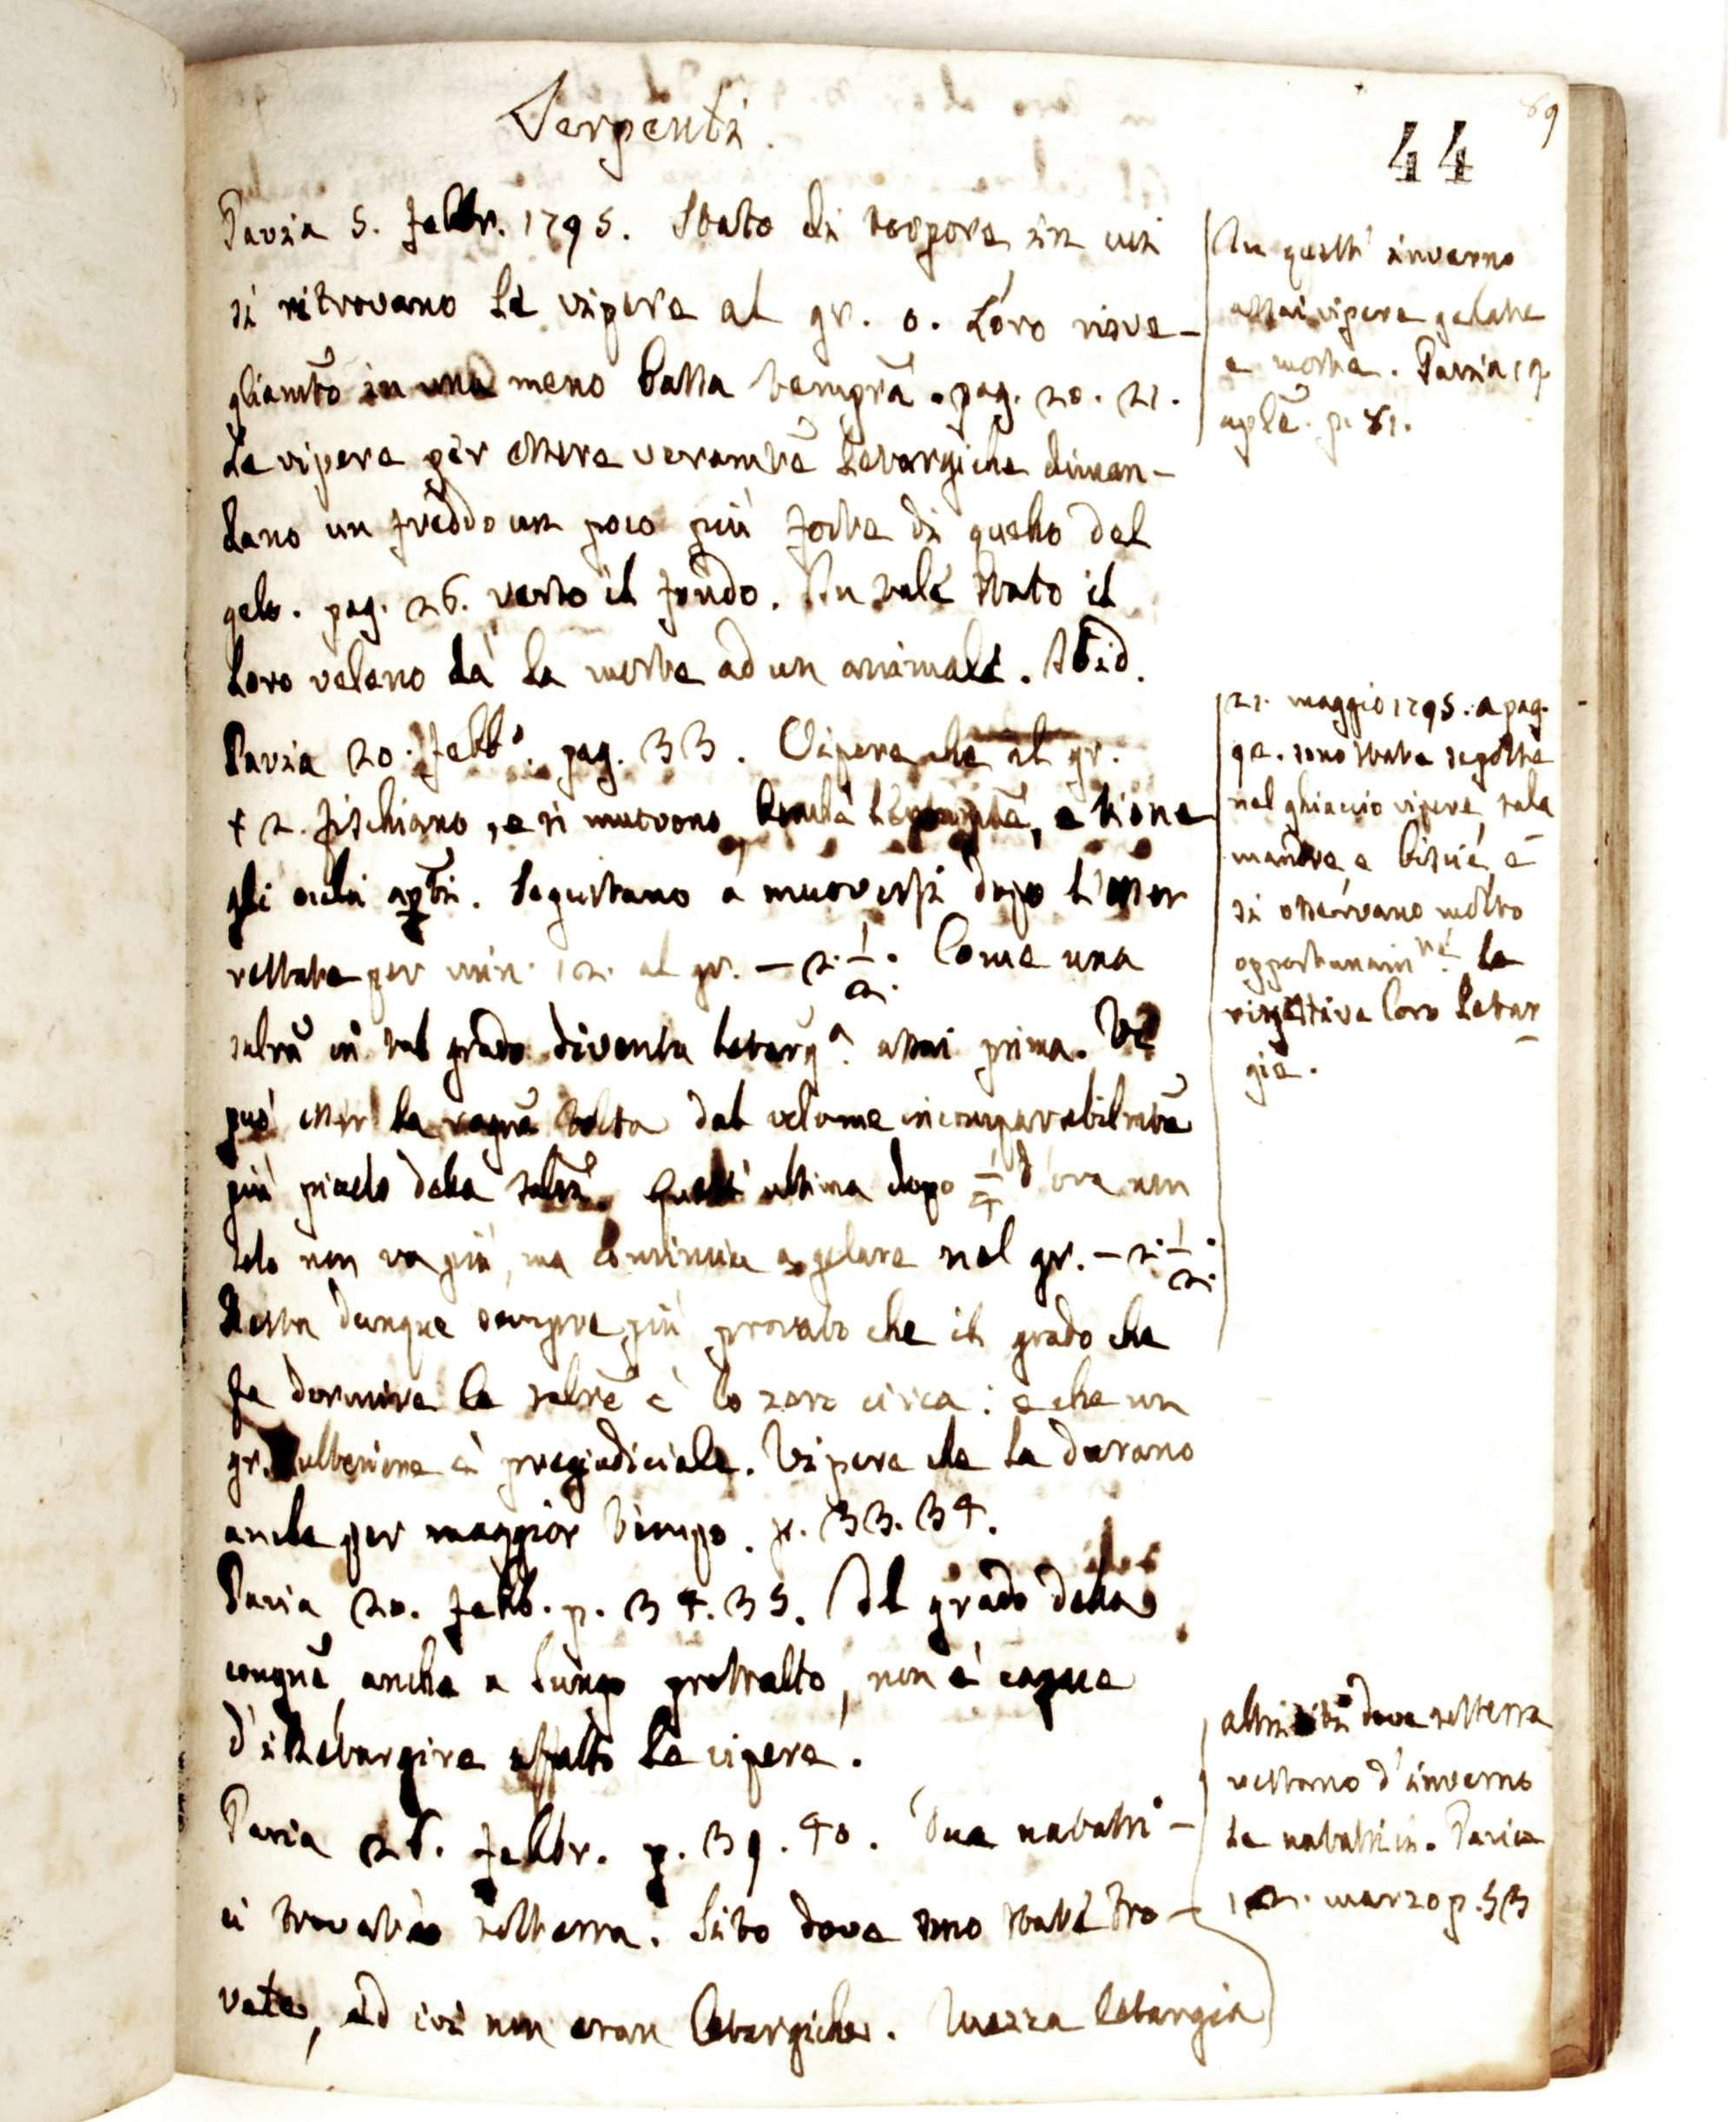 Serpenti.
44
89
Pavia 5. febbr. 1795. Stato di torpore in cui
si ritrovano le vipere al gr. 0. Loro risve-
gliamto in una meno bassa tempra. pag. 20. 21.
Le vipere per essere veramte letargiche diman-
dano un freddo un poco più forte di quello del
gelo. pag. 26. verso il fondo. In tale stato il
loro veleno dà la morte ad un animale. Ibid.
Pavia 20. febbo. pag. 33. Vipere che al gr.
+ 2. fischiano, e si muovono, e tione
gli occhi apti. Seguitano a muoversi dopo l'esser
restate per min. 12. al gr. – 2. 1/2. Come una
salra in tal grado diventa letarga. assai prima. Ne
può esser la ragne tolta dal volume incomparabilmte
più picciolo della salra. Quest' ultima dopo 1/4 d'ora non
solo non va più, ma comincia a gelare nel gr. – 2. 1/2.
Resta dunque sempre più provato che il grado che
fa dormire le salre è lo zero circa: e che un
gr. ulteriore è pregiudiciale. Vipere che la durano
anche per maggior tempo. p. 33. 34.
Pavia 20. febb. p. 34. 35. Il grado della
congne, anche a lungo protratto, non è capace
d'illetargire affatto le vipere.
Pavia 26. febbr. p. 39. 40. Due natatri-
ci trovate sotterra. Sito dove sono state tro-
vate, ed ivi non eran letargiche. Mezza letargia
In quest' inverno
assai vipere gelate
e morte. Pavia 19.
aple. p. 81.
21. maggio 1795. a pag.
92. sono state sepolte
nel ghiaccio vipere, sala
mandre, e biscie, e
si osservano molto
opportunamnte. le
rispettive loro letar
gie.
altri siti dove sotterra
restano d'inverno
le natatrici. Pavia
12. marzo p. 53